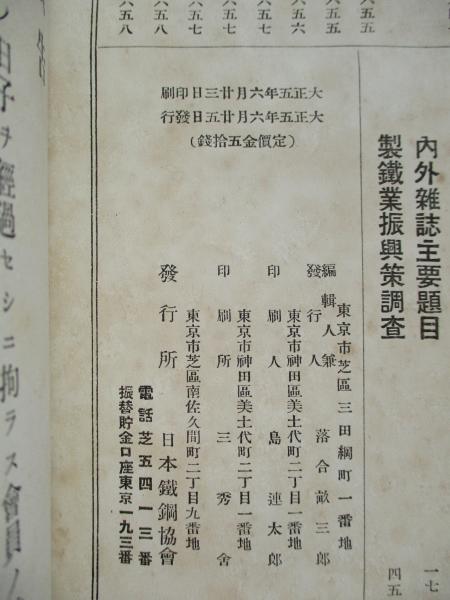 內外雜誌主要題目 一七
製鐵業振興策調查 四五
五五
五六
五七
五七
五八
五八
大正五年六月廿三日印刷
大正五年六月廿五日發行
(定價金五拾錢)
東京市芝區三田綱町一番地
編輯人兼
發行人 落合三郎
東京市神田區美土代町二丁目一番地
印刷人 島連太郎
東京市神田區美土代町二丁目一番地
印刷所 三秀舍
東京市芝區南佐久間町二丁目九番地
發行所 日本鐵鋼協會
電話芝五四一三番
振替貯金口座東京一九三番
ヲ經過セシニ拘ラス會員